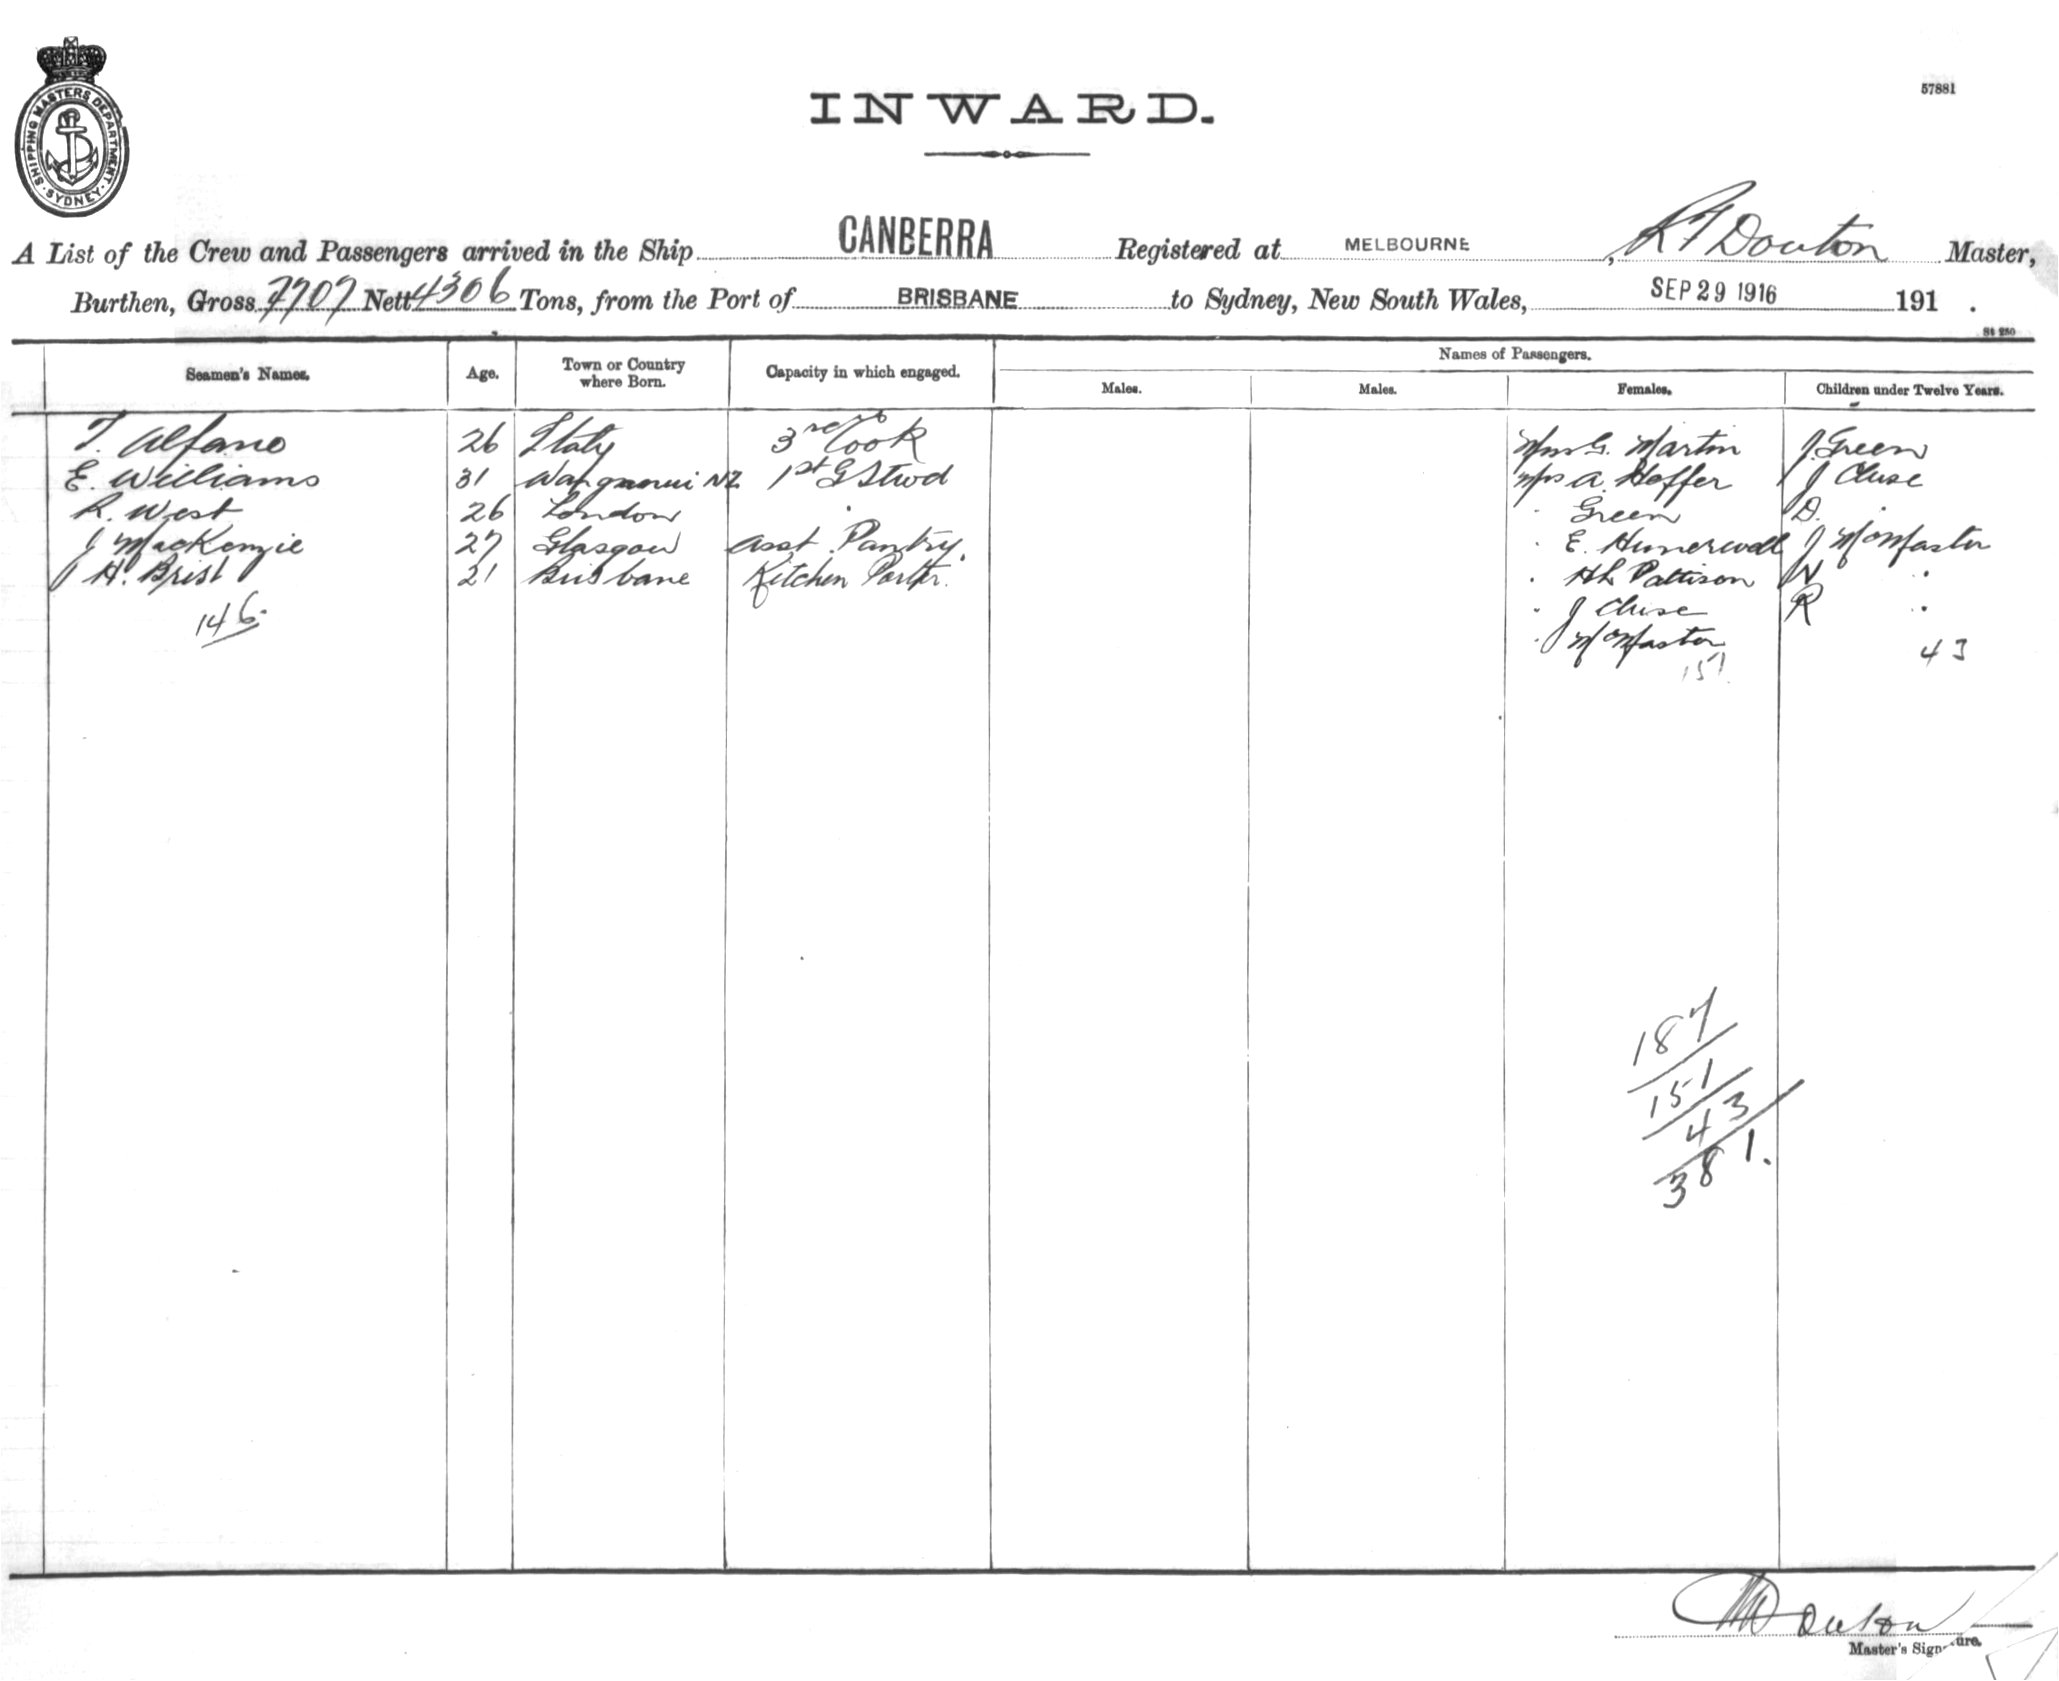 SHIPPING MASTERS DEPARTMENT · SYDNEY ·
INWARD.
57881
A List of the Crew and Passengers arrived in the Ship CANBERRA Registered at MELBOURNE, R F Douton Master,
Burthen, Gross 7707 Nett 4306 Tons, from the Port of BRISBANE to Sydney, New South Wales, SEP 29 1916 191 .
St 250
Seamen's Names. Age. Town or Country where Born. Capacity in which engaged. Names of Passengers.
Males. Males. Females. Children under Twelve Years.
T. Alfano 26 Italy 3rd Cook Mrs G. Martin J. Green
E. Williams 31 Wanganui NZ 1st G Stwd Mrs A. Hoffer J Cluse
R. West 26 London " " Green D.
J MacKenzie 27 Glasgow Asst Pantry. " E. J McMaster
H. Brist 21 Brisbane Kitchen Porter. " H L Pattison W "
146. " J Cluse R "
" McMaster
151. 43
187
151
43
381.
Douton
Master's Signature.